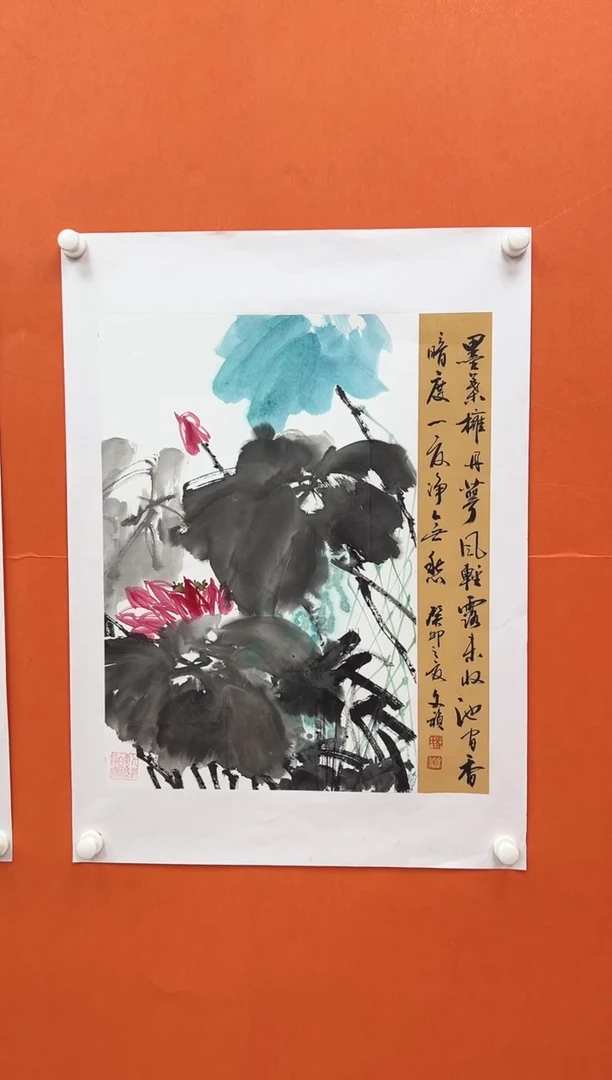 墨葉擁丹萼風輕露未收池香
暗度一夏淨無愁 癸卯之夏 文禎